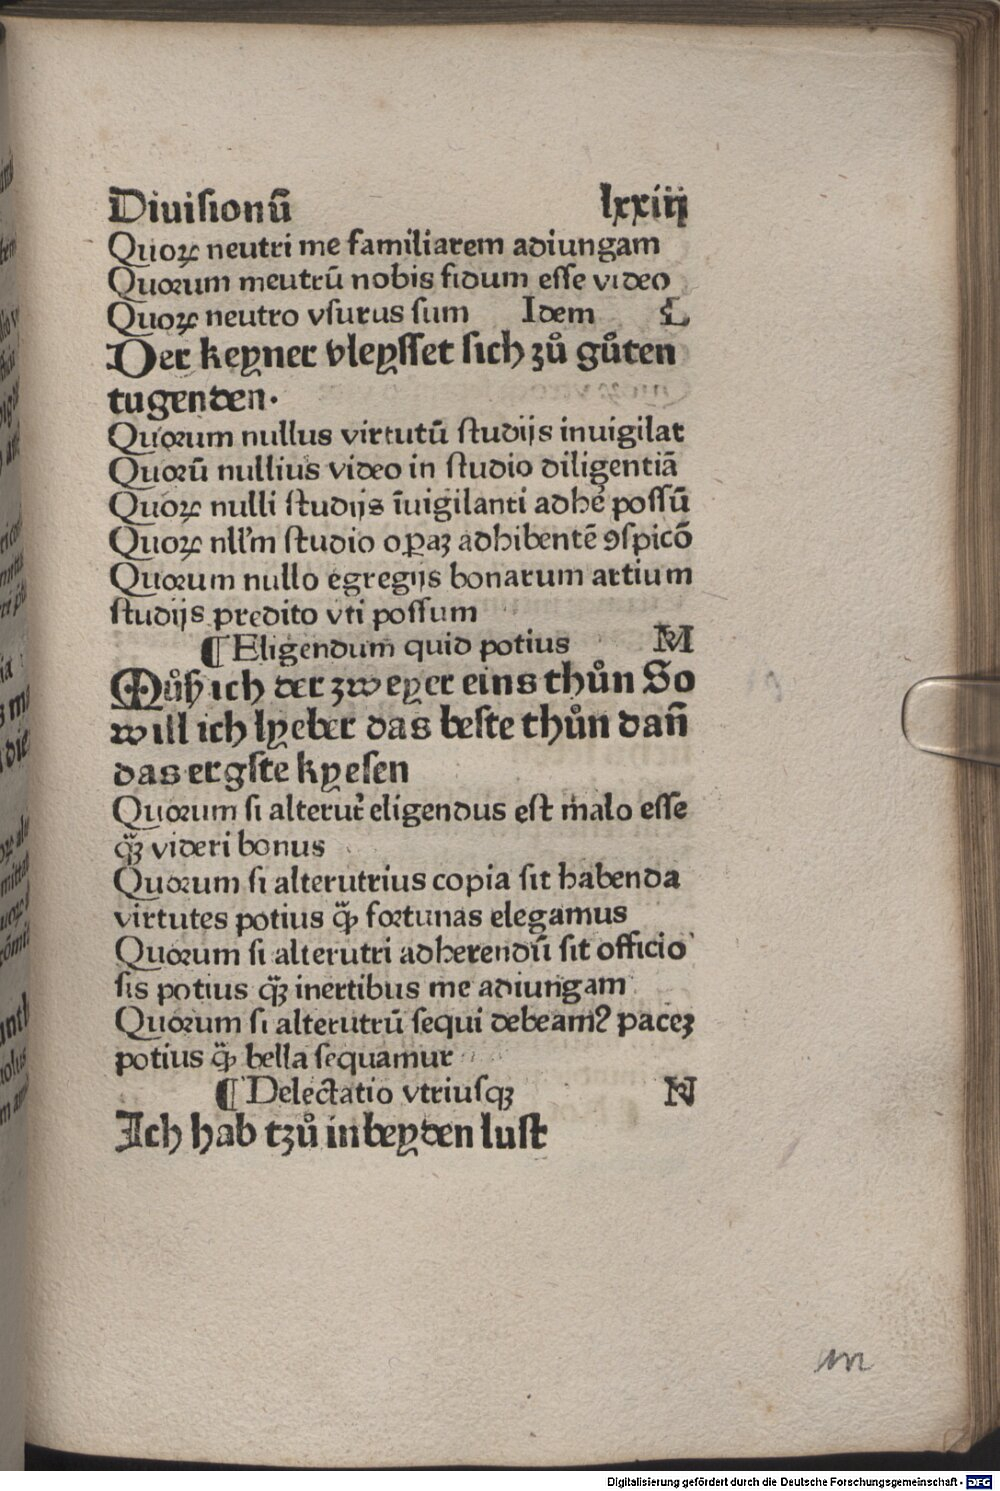 Diuiſionū lxxiij
Quoꝝ neutri me familiarem adiungam
Quorum meutrū nobis fidum eſſe video
Quoꝝ neutro vſurus ſum Idem L
Der keyner vleyſſet ſich zů gůten
tugenden.
Quorum nullus virtutū ſtudijs inuigilat
Quorū nullius video in ſtudio diligentiā
Quoꝝ nulli ſtudijs īuigilanti adhe᷑ poſſū
Quoꝝ nll'm ſtudio oꝑaꝫ adhibentē ꝯſpicō
Quorum nullo egregijs bonarum artium
ſtudijs predito vti poſſum
¶ Eligendum quid potius M
Můß ich der zweyer eins thůn So
will ich lyeber das beſte thůn dan̄
das ergſte kyeſen
Quorum ſi alterut᷑ eligendus eſt malo eſſe
q̈ꝫ videri bonus
Quorum ſi alterutrius copia ſit habenda
virtutes potius q̈ꝫ fortunas elegamus
Quorum ſi alterutri adherendū ſit officio
ſis potius q̈ꝫ inertibus me adiungam
Quorum ſi alterutrū ſequi debeam? paceꝫ
potius q̈ꝫ bella ſequamur
¶ Delectatio vtriuſqꝫ N
Ich hab tzů inbeyden luſt
Digitalisierung gefördert durch die Deutsche Forschungsgemeinschaft - DFG